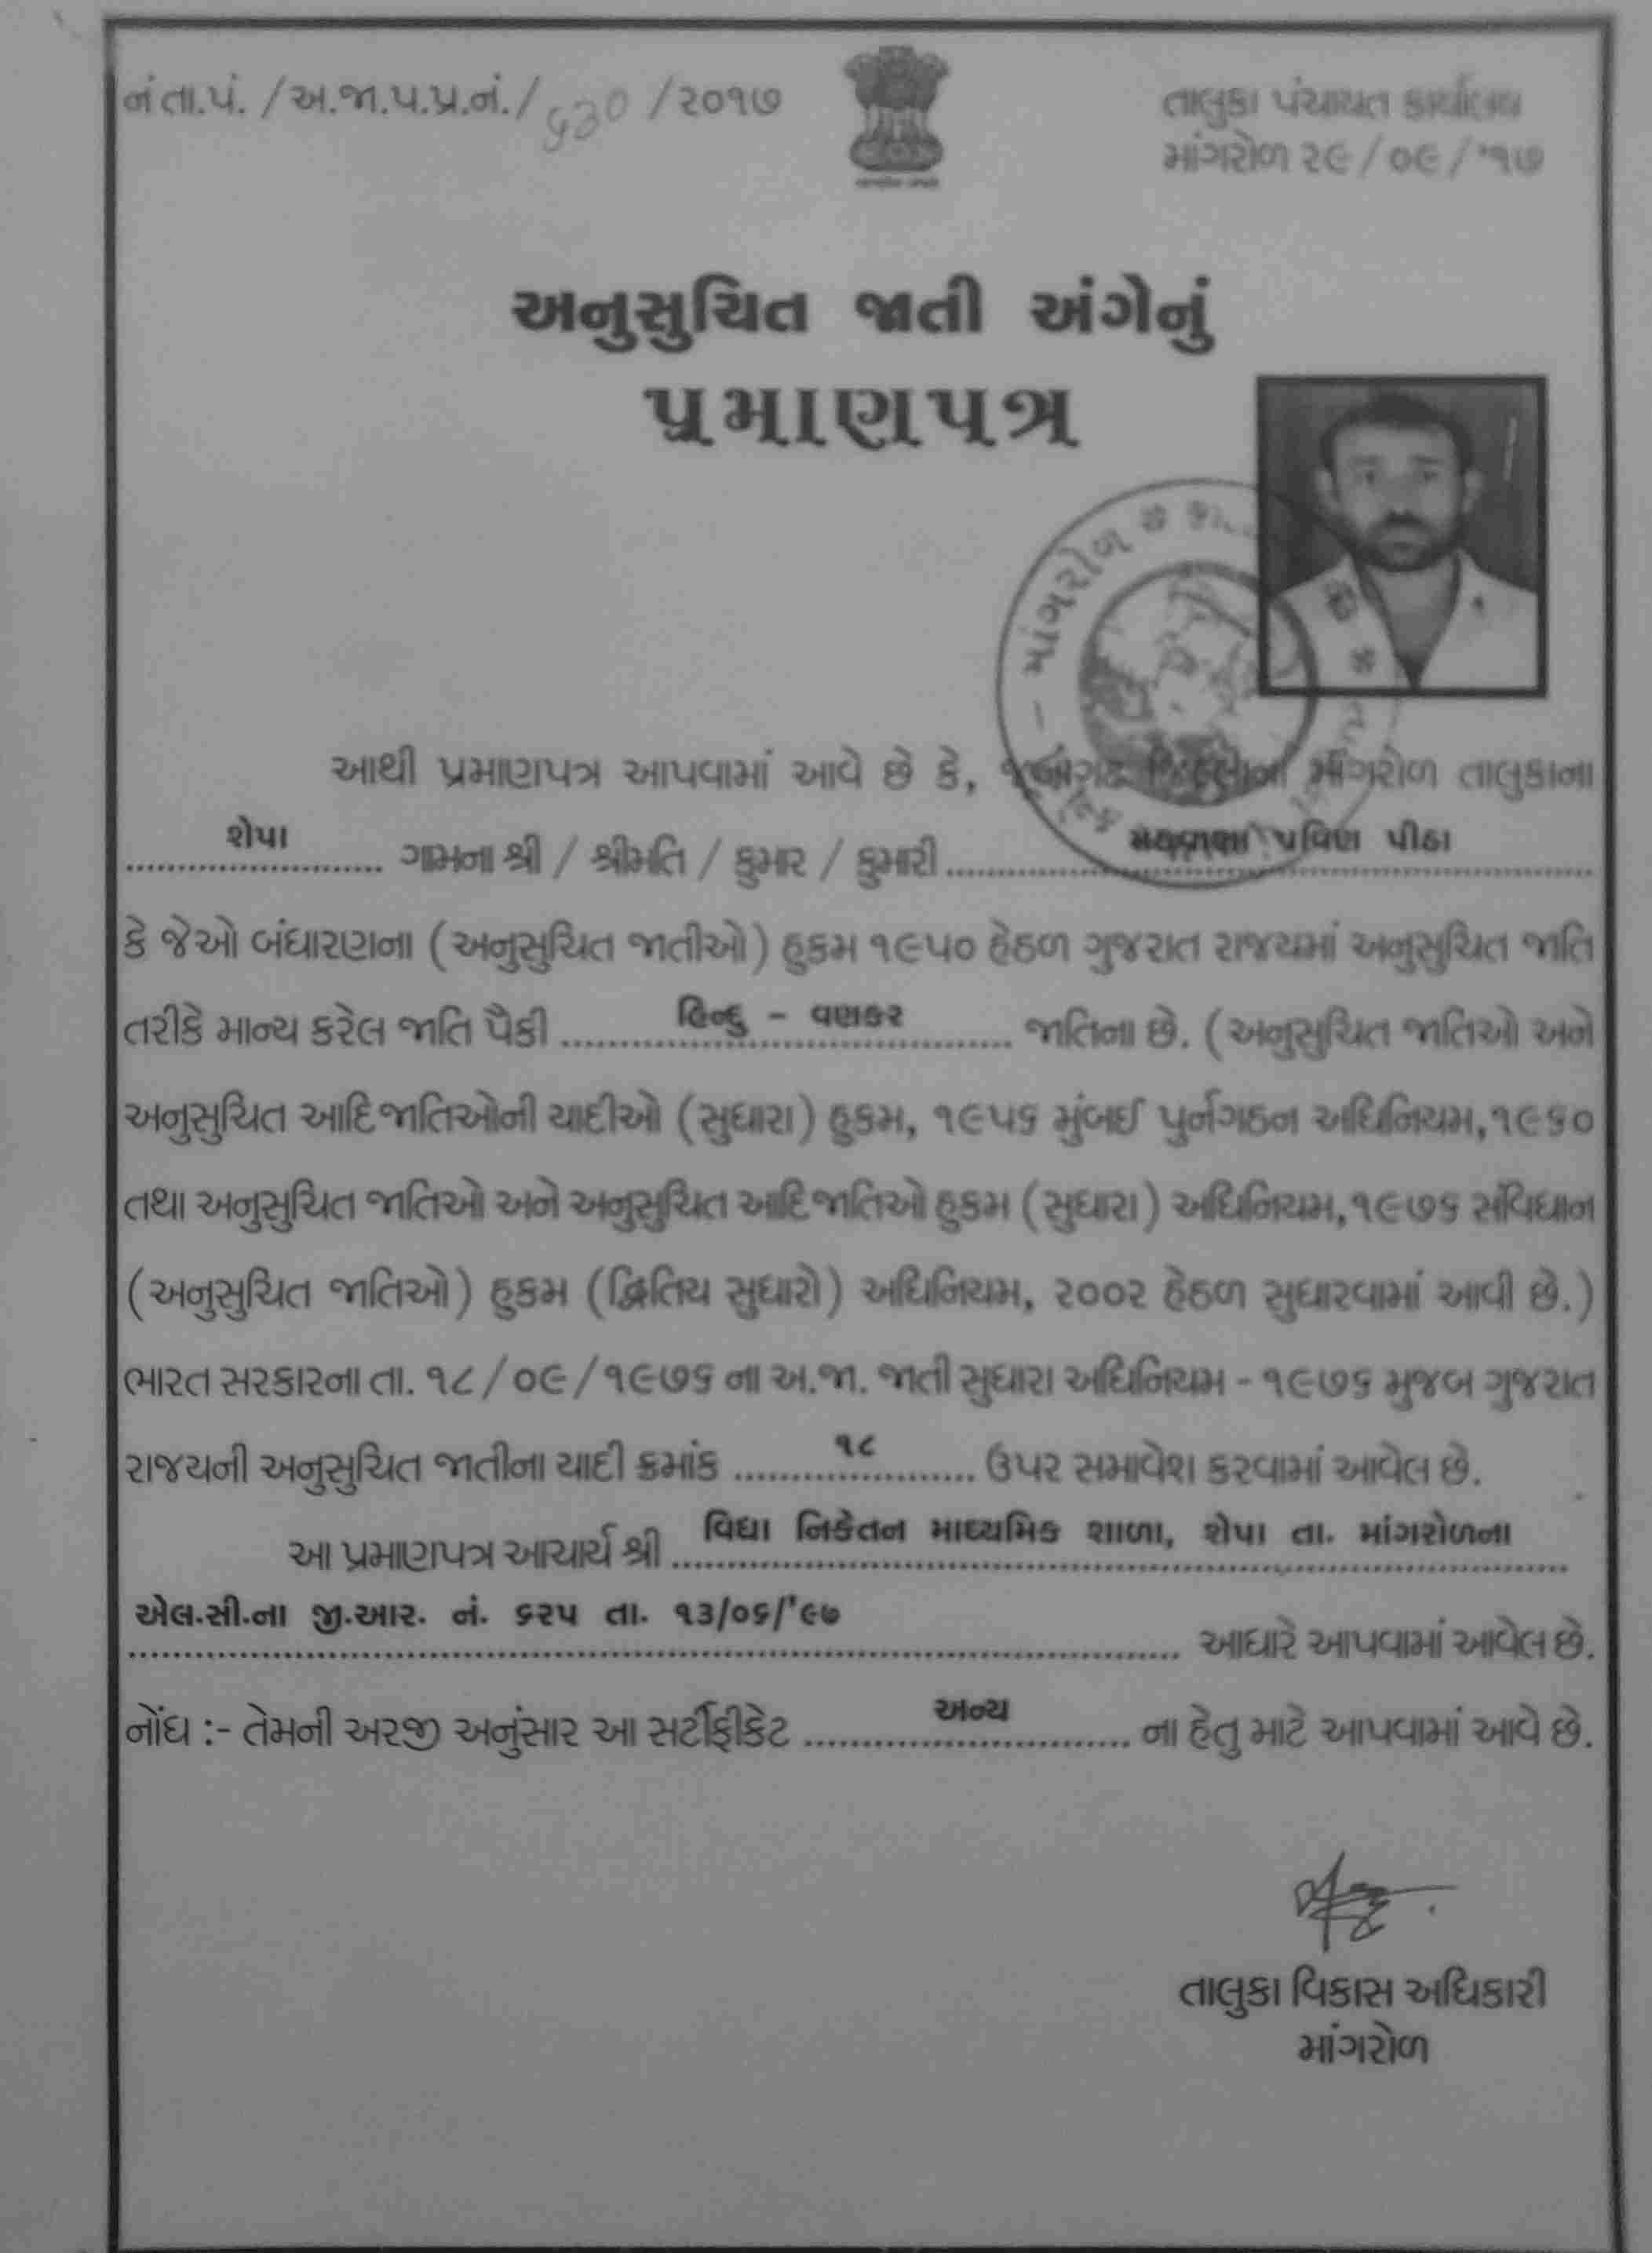 નં તા.પં. /અ.જા.પ.પ્ર.નં./ ૬૩૦ /૨૦૧૭
તાલુકા પંચાયત કાર્યાલય
માંગરોળ ૨૯/૦૯/'૧૭
અનુસુચિત જાતી અંગેનું
પ્રમાણપત્ર
માંગરોળ
આથી પ્રમાણપત્ર આપવામાં આવે છે કે, જુનાગઢ જિલ્લાના માંગરોળ તાલુકાના
શેપા ગામના શ્રી / શ્રીમતિ / કુમાર / કુમારી પ્રવિણ પીઠા
કે જેઓ બંધારણના (અનુસુચિત જાતીઓ) હુકમ ૧૯૫૦ હેઠળ ગુજરાત રાજયમાં અનુસુચિત જાતિ
તરીકે માન્ય કરેલ જાતિ પૈકી હિન્દુ - વણકર જાતિના છે. (અનુસુચિત જાતિઓ અને
અનુસુચિત આદિજાતિઓની યાદીઓ (સુધારા) હુકમ, ૧૯૫૬ મુંબઈ પુર્નગઠન અધિનિયમ,૧૯૬૦
તથા અનુસુચિત જાતિઓ અને અનુસુચિત આદિજાતિઓ હુકમ (સુધારા) અધિનિયમ,૧૯૭૬ સંવિધાન
(અનુસુચિત જાતિઓ) હુકમ (દ્વિતિય સુધારો) અધિનિયમ, ૨૦૦૨ હેઠળ સુધારવામાં આવી છે.)
ભારત સરકારના તા. ૧૮/૦૯/૧૯૭૬ ના અ.જા. જાતી સુધારા અધિનિયમ - ૧૯૭૬ મુજબ ગુજરાત
રાજયની અનુસુચિત જાતીના યાદી ક્રમાંક ૧૮ ઉપર સમાવેશ કરવામાં આવેલ છે.
આ પ્રમાણપત્ર આચાર્ય શ્રી વિદ્યા નિકેતન માધ્યમિક શાળા, શેપા તા. માંગરોળના
એલ.સી.ના જી.આર. નં. ૬૨૫ તા. ૧૩/૦૬/'૯૭ આધારે આપવામાં આવેલ છે.
નોંધ :- તેમની અરજી અનુંસાર આ સર્ટીફીકેટ અન્ય ના હેતુ માટે આપવામાં આવે છે.
તાલુકા વિકાસ અધિકારી
માંગરોળ